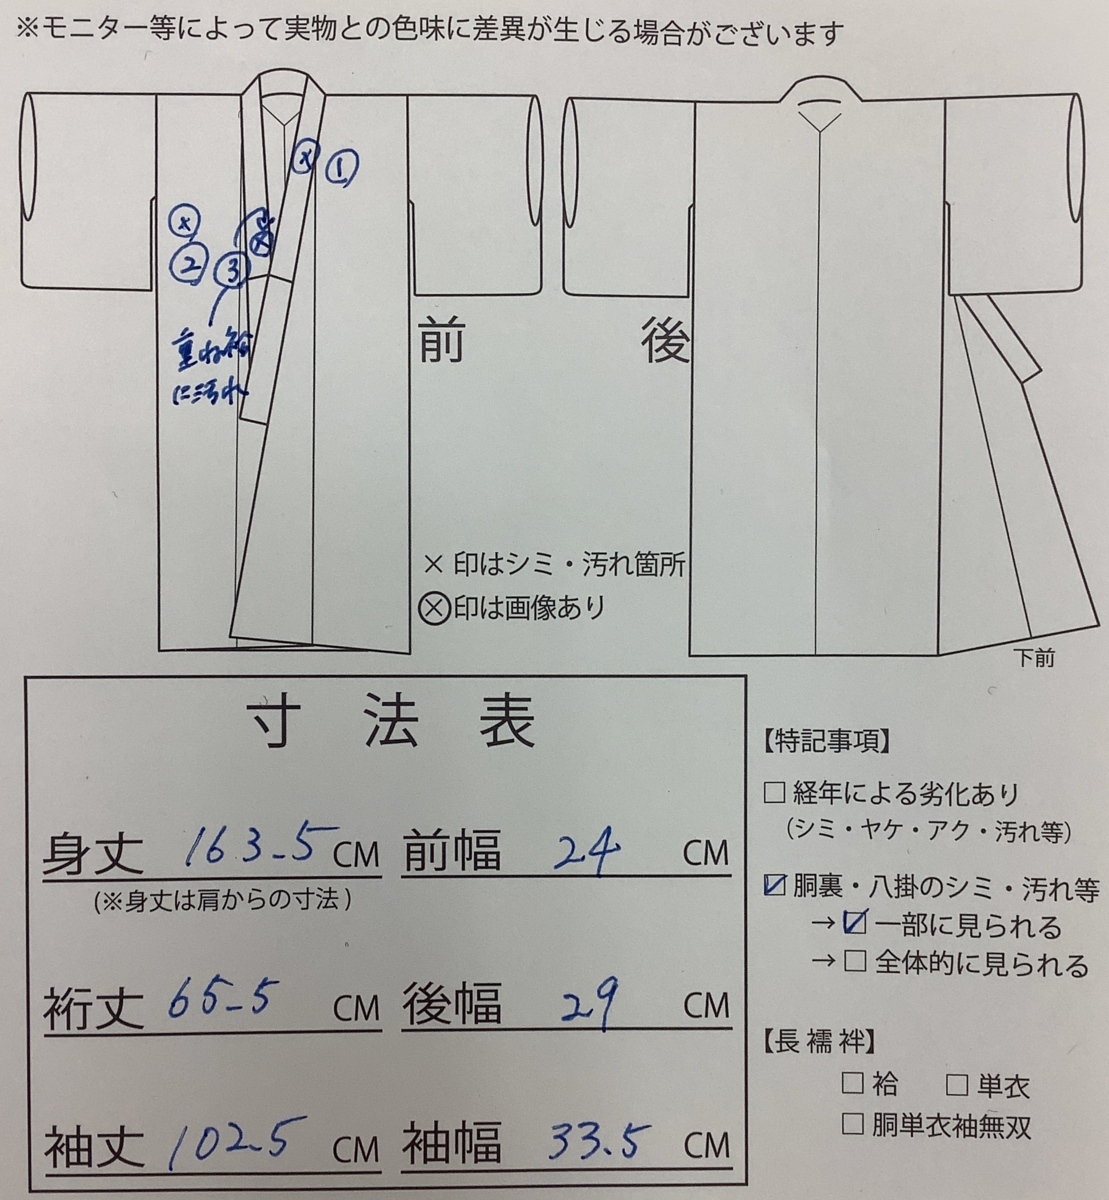 ※モニター等によって実物との色味に差異が生じる場合がございます
ⓧ ①
ⓧ
② ③ ⓧ
重ね衿
に汚れ
前
後
× 印はシミ・汚れ箇所
ⓧ印は画像あり
下前
寸 法 表
身丈 163.5 CM 前幅 24 CM
(※身丈は肩からの寸法)
裄丈 65.5 CM 後幅 29 CM
袖丈 102.5 CM 袖幅 33.5 CM
【特記事項】
☐ 経年による劣化あり
(シミ・ヤケ・アク・汚れ等)
☑ 胴裏・八掛のシミ・汚れ等
→ ☑ 一部に見られる
→ ☐ 全体的に見られる
【長 襦 袢】
☐ 袷 ☐ 単衣
☐ 胴単衣袖無双